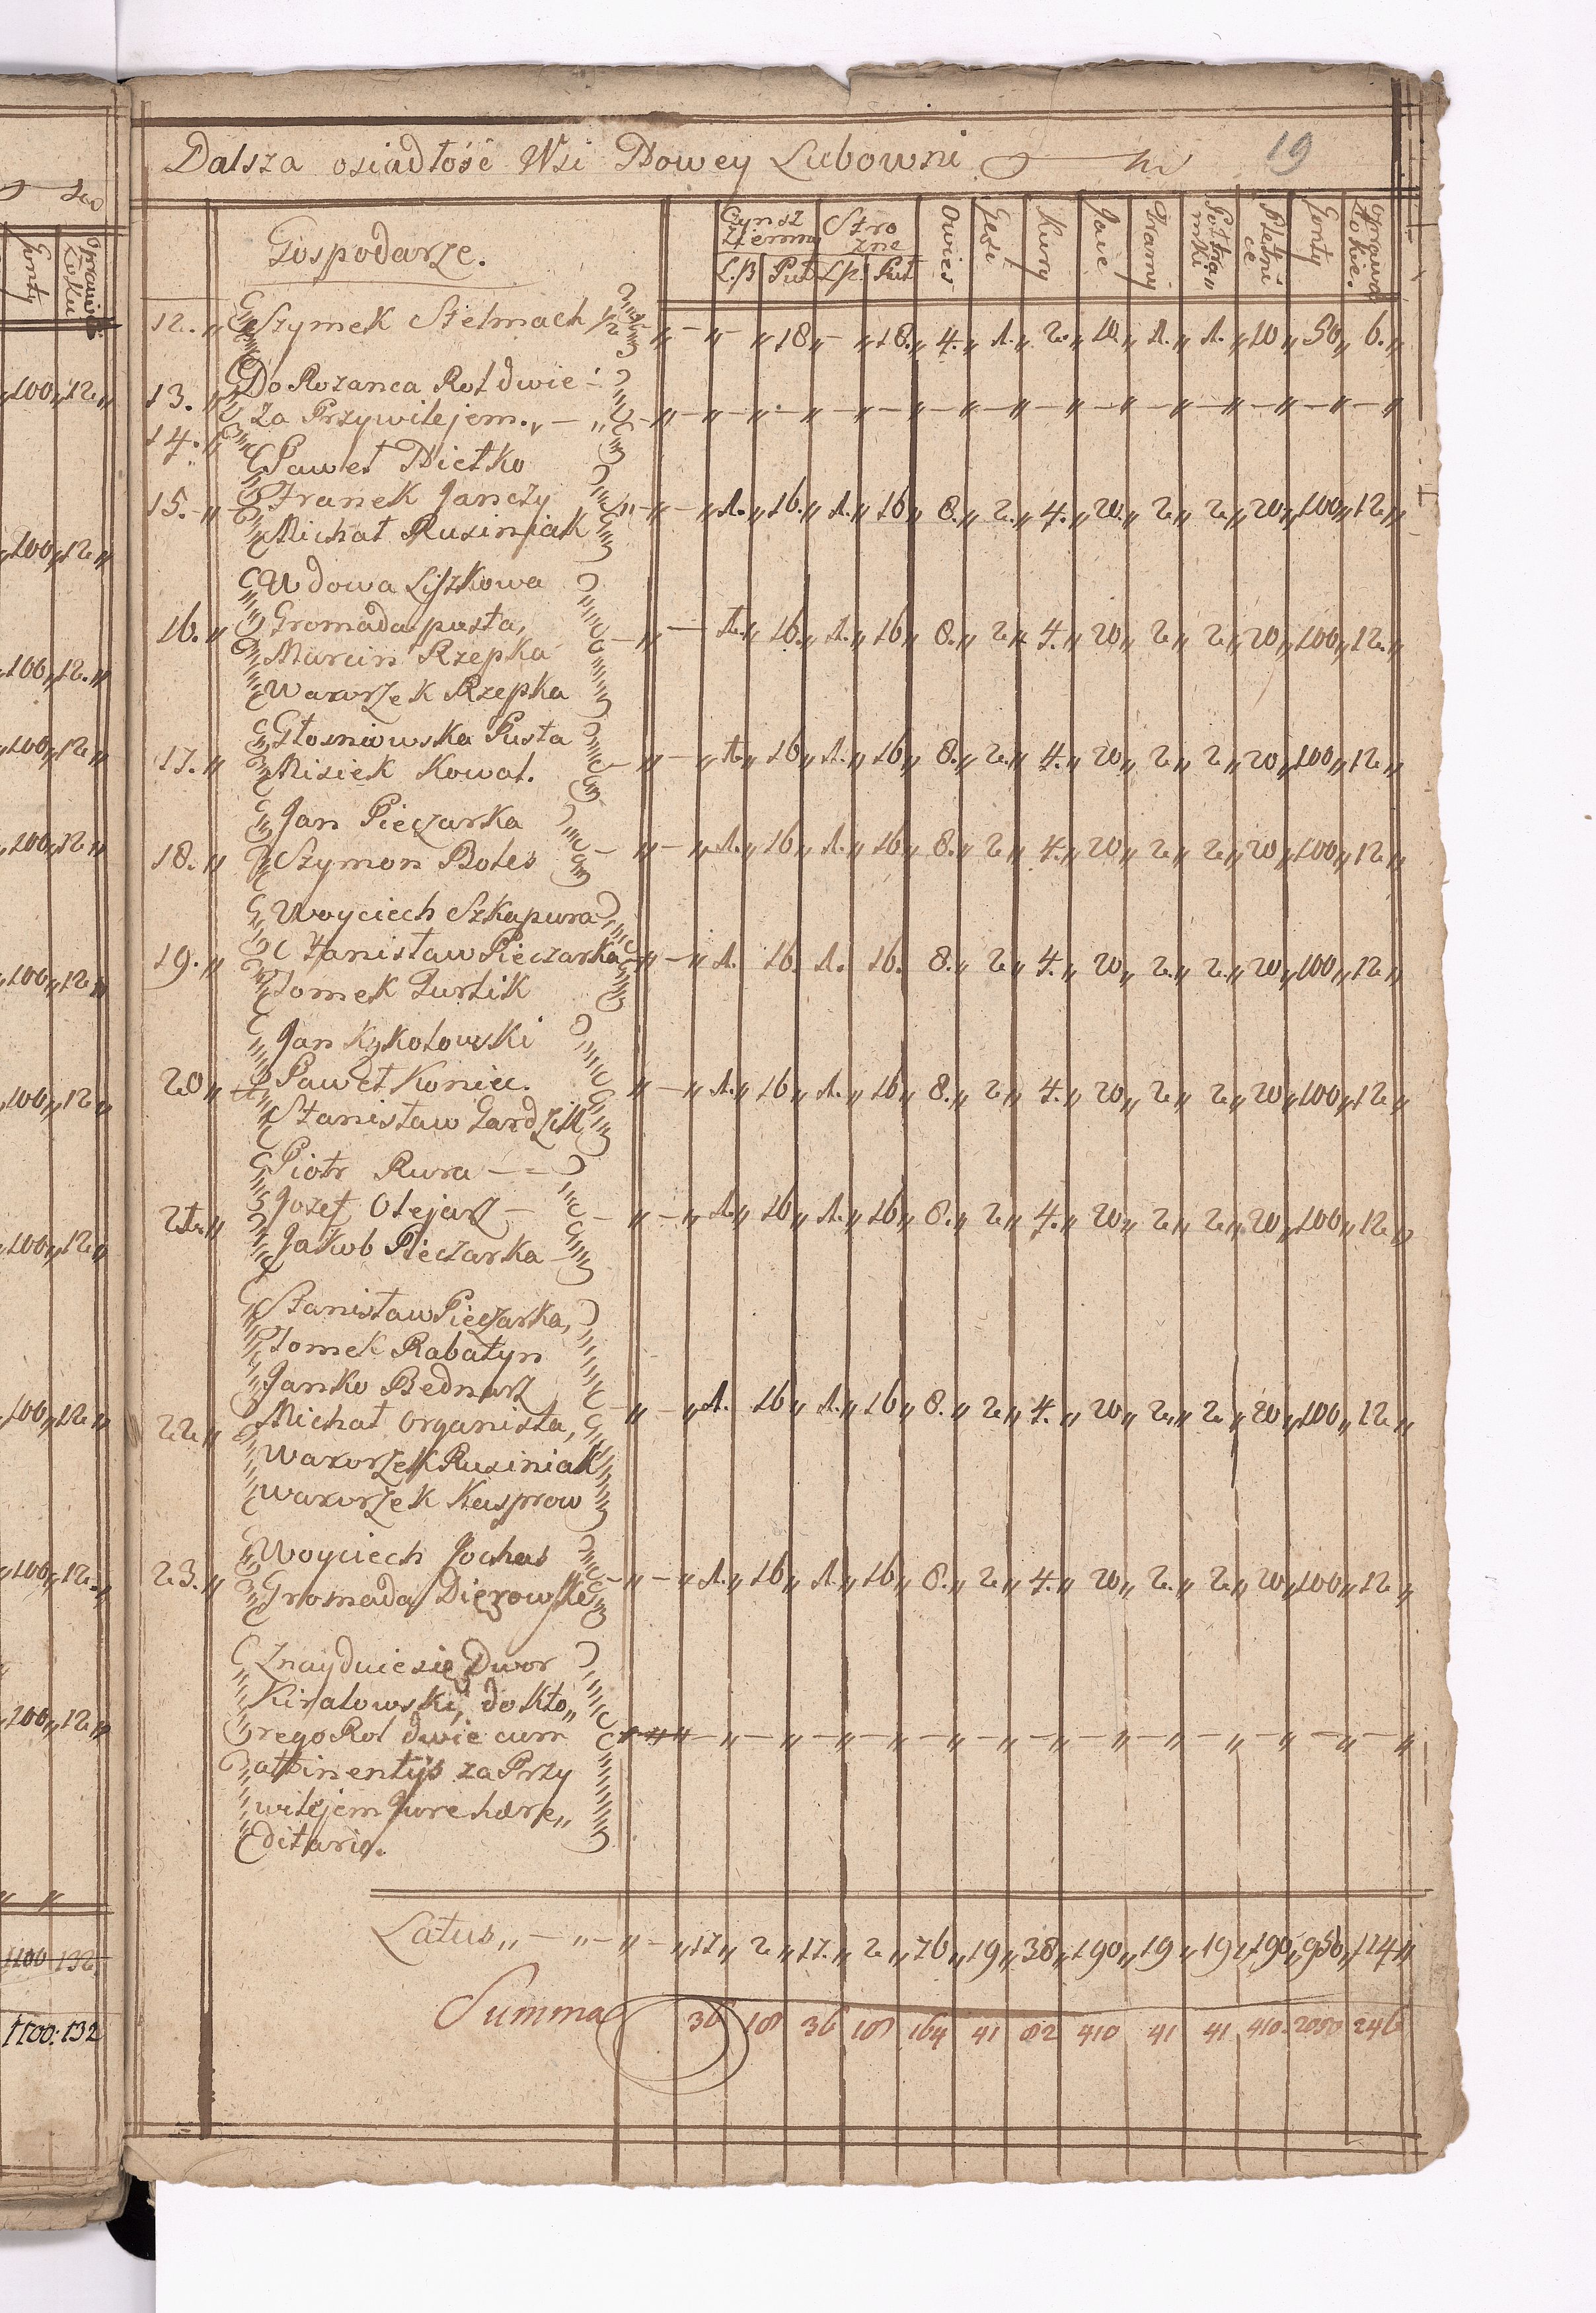 Dalsza osiadłość Wsi Nowey Lubowni
19
Gospodarze.
Czynsz Ziemny Stro zne Owies Gęsi Kury Jaie Zrzarny Połtra„ mki Płetni ce Gonty Oprawa
fl.p Put fl.p Put
12.„ Szymek Stelmach 1/2 „ — „ — „ 18 „ — „ 18 „ 4. „ 1. „ 2. „ 10. „ 1. „ 1. „ 10 „ 50 „ 6. „
13. „ Do Rozanca Rol dwie
14. „ za Przywilejem. „ — „ — „ — „ — „ — „ — „ — „ — „ — „ — „ — „ — „ — „ — „
Paweł Dietko
15. „ Franek Janczy „ — „ 1. „ 16. „ 1. „ 16 „ 8. „ 2. „ 4. „ 20. „ 2 „ 2. „ 20 „ 100 „ 12 „
Michał Rusiniak
Wdowa Liszkowa
16. „ Gromada pusta, — „ — 1. „ 16. „ 1. „ 16 „ 8. „ 2 „ 4. „ 20 „ 2 „ 2. „ 20 „ 100 „ 12. „
Marcin Rzepka
Wawrzek Rzepka
Głosniowska Pusta
17. „ Misiek Kowal. — „ — „ 1. „ 16 „ 1. „ 16 „ 8. „ 2. „ 4. „ 20 „ 2 „ 2. „ 20 „ 100 „ 12 „
Jan Pieczarka
18. „ Szymon Boles — „ — „ 1. „ 16 „ 1. „ 16 „ 8. „ 2 „ 4. „ 20 „ 2 „ 2 „ 20 „ 100 „ 12 „
Woyciech Szkapura
19. „ Stanisław Pieczarka „ — „ 1. 16. 1. 16. 8. „ 2 „ 4. „ 20 „ 2. „ 2. „ 20 „ 100 „ 12 „
Tomek Turlik
Jan Kykolowski
20 „ Paweł Koniec. „ — „ 1. „ 16 „ 1. „ 16 „ 8. „ 2 „ 4. „ 20 „ 2 „ 2 „ 20 „ 100 „ 12 „
Stanisław Gardzik
Piotr Rura —
21. „ Jozef Olejarz — — „ — „ 1. „ 16 „ 1. „ 16 „ 8. „ 2 „ 4. „ 20 „ 2 „ 2 „ 20 „ 100 „ 12 „
Jakub Pieczarka
Stanisław Pieczarka,
Tomek Rabatyn
Janko Bednarz „ — „ 1. 16 „ 1. „ 16 „ 8. „ 2 „ 4. „ 20 „ 2 „ 2. „ 20 „ 100 „ 12 „
22 „ Michał Organista,
Wawrzek Rusiniak
Wawrzek Kasprow
23. „ Woyciech Jochas — „ — „ 1. „ 16 „ 1. „ 16 „ 8. „ 2 „ 4. „ 20 „ 2. „ 2. „ 20 „ 100 „ 12 „
Gromada
Znayduie się Dwor
Kiralowski, do kto„
rego Rol dwie cum „ — „ — „ — „ — „ — „ — „ — „ — „ — „ — „ — „ — „ — „
attinentijs za Przy
wilejem Jure hære„
ditario.
Latus „ — „ — „ — „ 17 „ 2 „ 17. „ 2 „ 76 „ 19 „ 38 „ 190 „ 19 „ 19 „ 190 „ 950 „ 114 „
Summa 36 18 36 18 164 41 82 410 41 41 410 2050 246
Gonty
100 „ 12 „
100 „ 12 „
100 „ 12. „
100 „ 12 „
100 „ 12 „
100 „ 12 „
100 „ 12 „
100 „ 12 „
100 „ 12 „
100 „ 12. „
100 „ 12 „
1100 132.
1100: 132